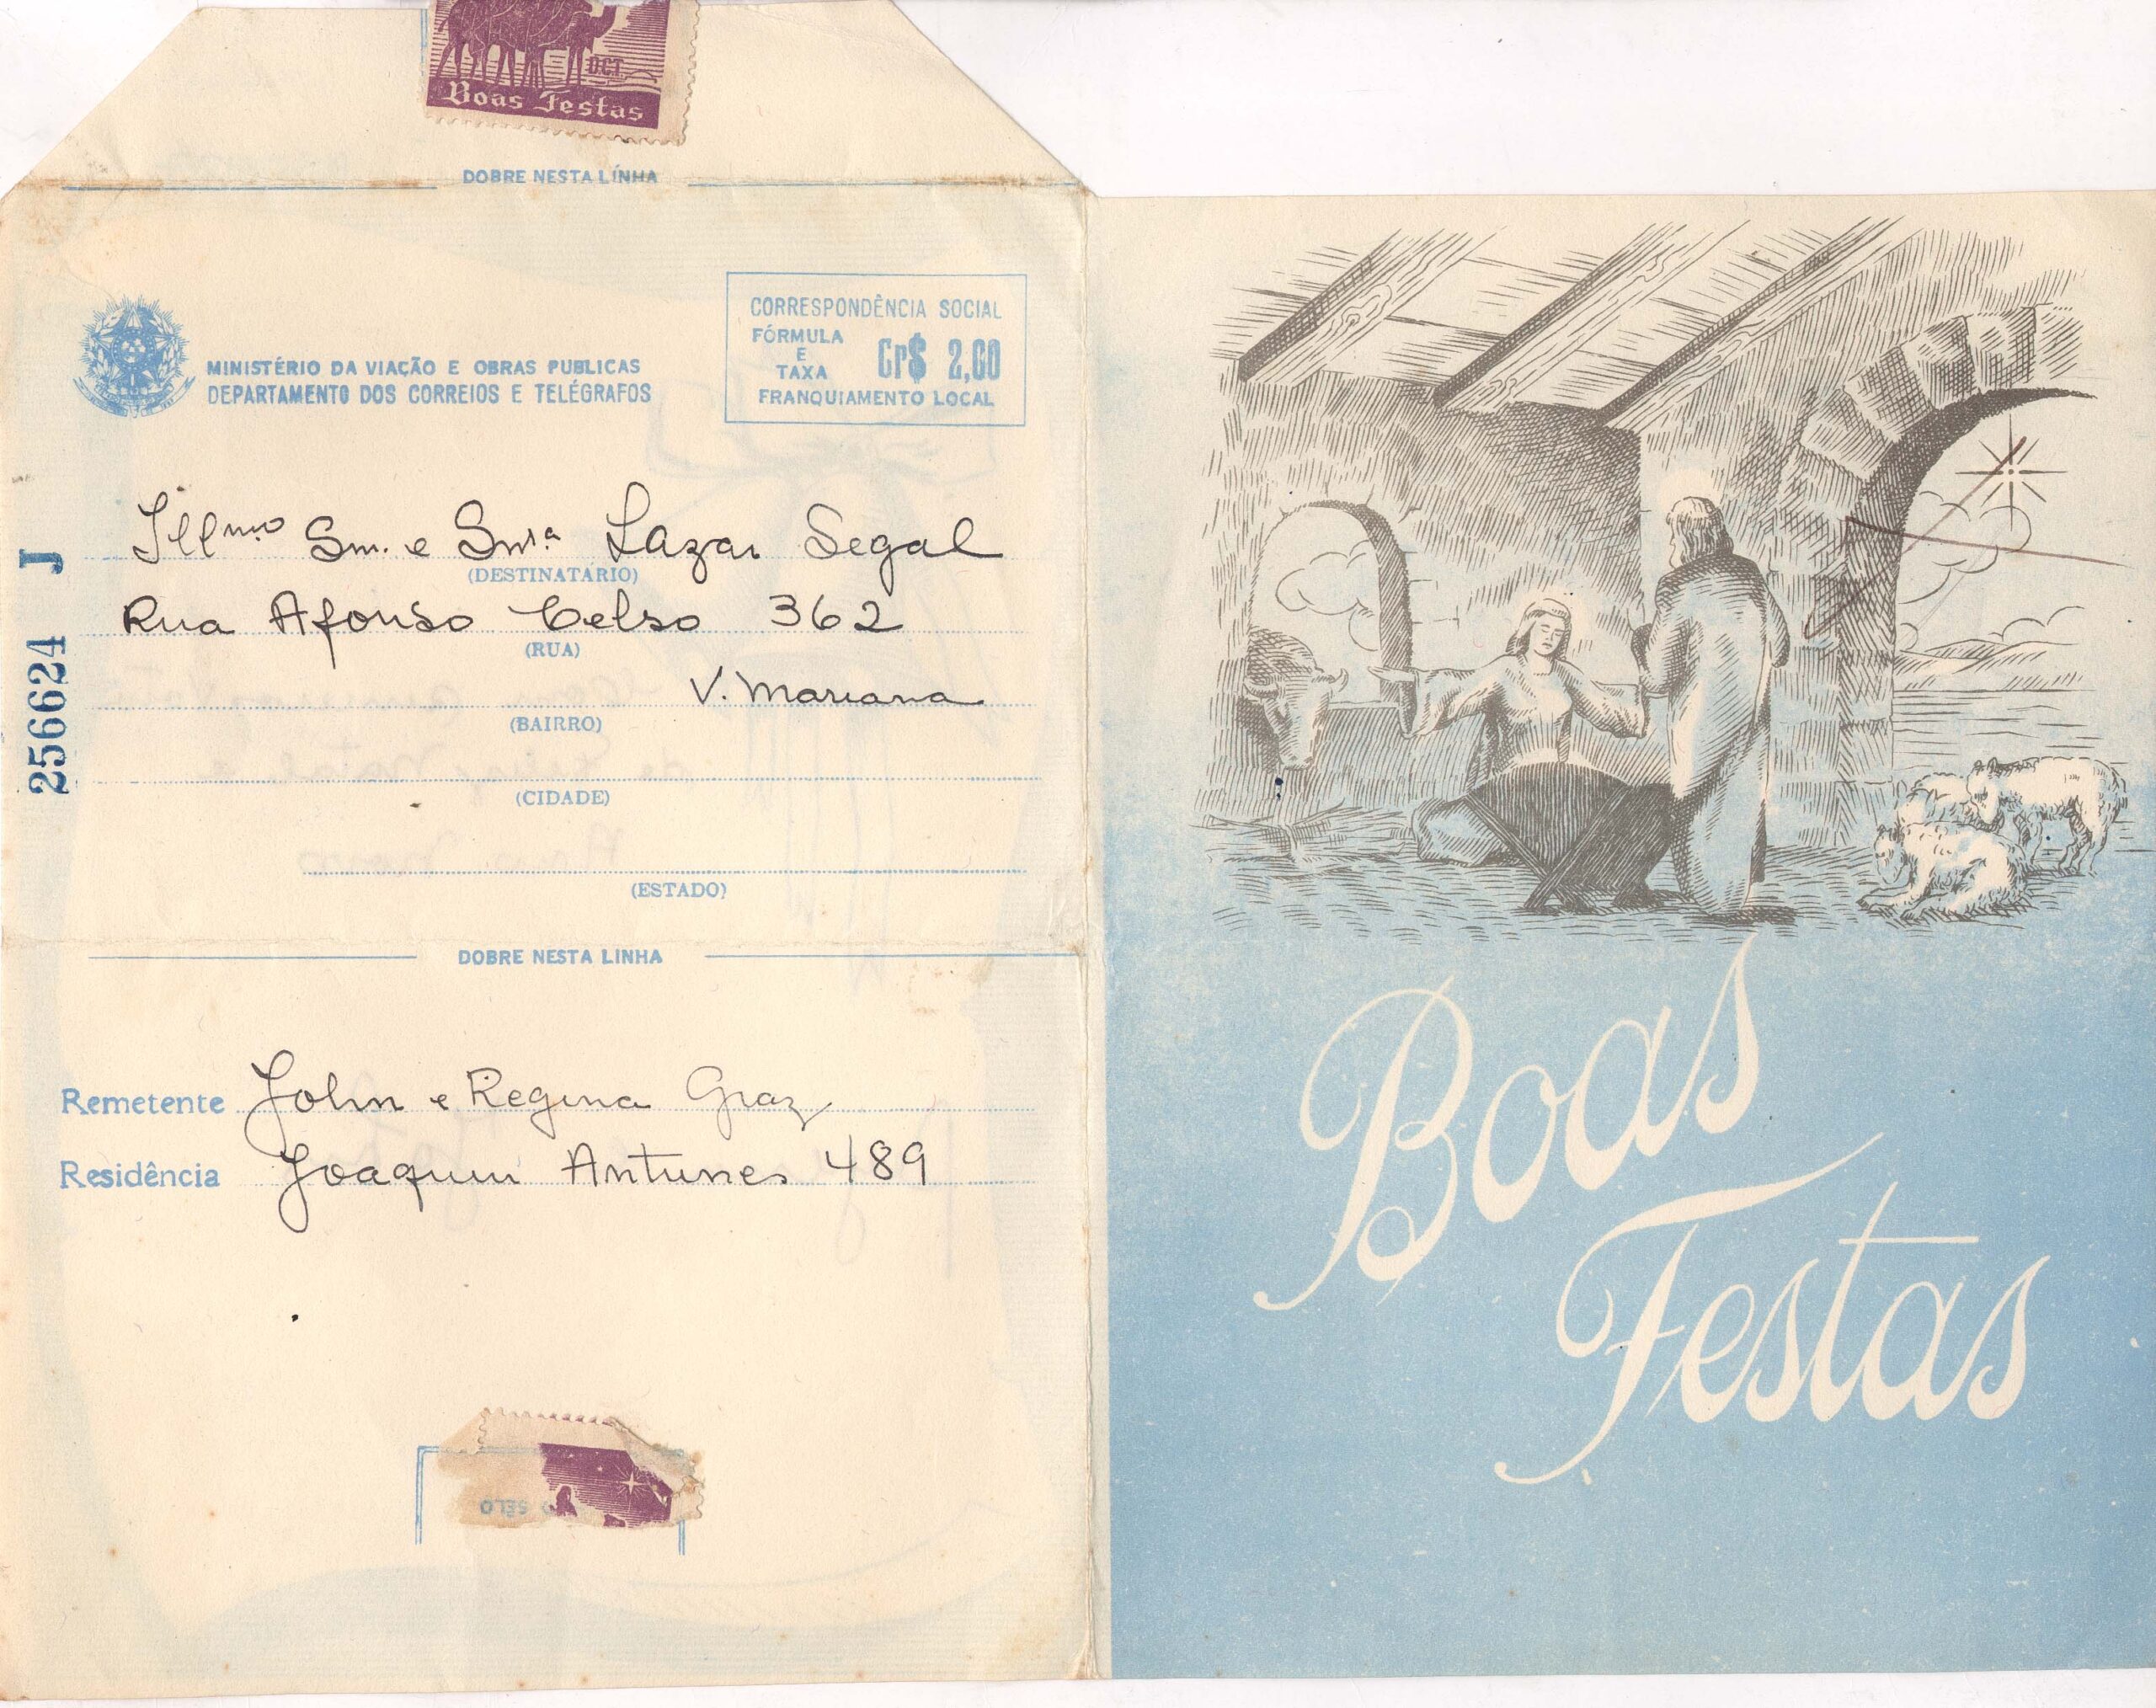 D.C.T.
Boas Festas
DOBRE NESTA LINHA
MINISTÉRIO DA VIAÇÃO E OBRAS PUBLICAS
DEPARTAMENTO DOS CORREIOS E TELÉGRAFOS
CORRESPONDÊNCIA SOCIAL
FÓRMULA E TAXA Cr$ 2,60
FRANQUIAMENTO LOCAL
Illmo Snr. e Snra. Lazar Segal
(DESTINATÁRIO)
Rua Afonso Celso 362
(RUA)
V. Mariana
(BAIRRO)
(CIDADE)
(ESTADO)
256624 J
DOBRE NESTA LINHA
Remetente John e Regina Graz
Residência Joaquim Antunes 489
SELO
Boas
Festas